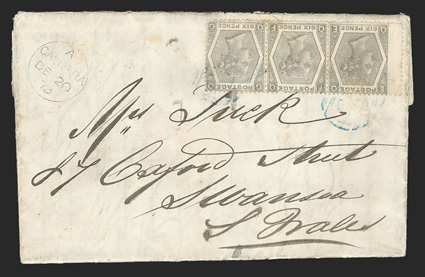 A
CALDERA
DE 20
73
SIX PENCE
SIX PENCE
SIX PENCE
POSTAGE
POSTAGE
POSTAGE
Mrs Tuck
87 Oxford Street
Swansea
S Wales